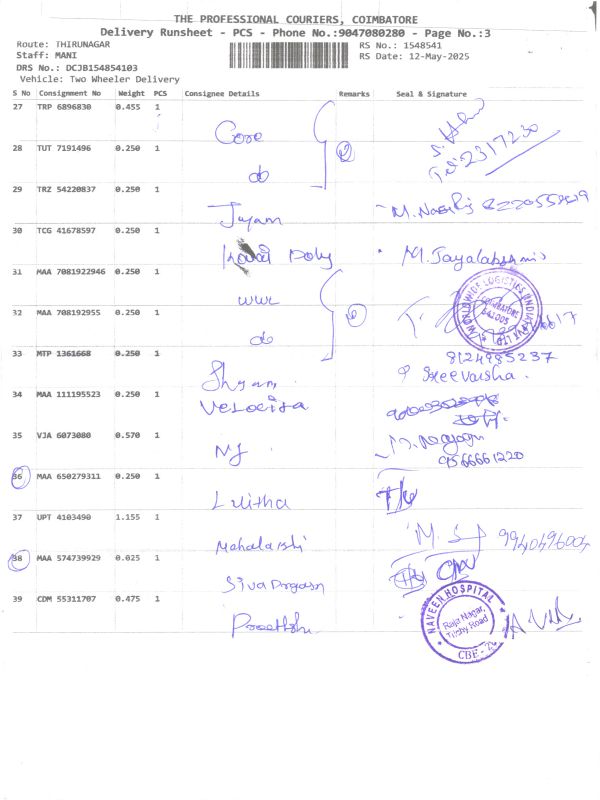 THE PROFESSIONAL COURIERS, COIMBATORE
Delivery Runsheet - PCS - Phone No.:9047080280 - Page No.:3
Route: THIRUNAGAR RS No.: 1548541
Staff: MANI RS Date: 12-May-2025
DRS No.: DCJB154854103
Vehicle: Two Wheeler Delivery
S No Consignment No Weight PCS Consignee Details Remarks Seal & Signature
27 TRP 6896830 0.455 1
Core
28 TUT 7191496 0.250 1 2317230
do
29 TRZ 54220837 0.250 1
Jayam
30 TCG 41678597 0.250 1
Poly M. Jayalakshmi
31 MAA 7081922946 0.250 1
WWL
WORLDWIDE LOGISTICS (INDIA) PVT LTD
COIMBATORE
641005
32 MAA 708192955 0.250 1
do
33 MTP 1361668 0.250 1 8124985237
Shyam Sreevarsha.
34 MAA 111195523 0.250 1
Velocita
35 VJA 6073080 0.570 1
NJ 9566661220
36 MAA 650279311 0.250 1
Lalitha
37 UPT 4103490 1.155 1
Mahalakshi M. S 9940496004
38 MAA 574739929 0.025 1
Siva Prgasn
39 CDM 55311707 0.475 1
Preethshi
NAVEEN HOSPITAL
Raja Nagar,
Trichy Road
CBE